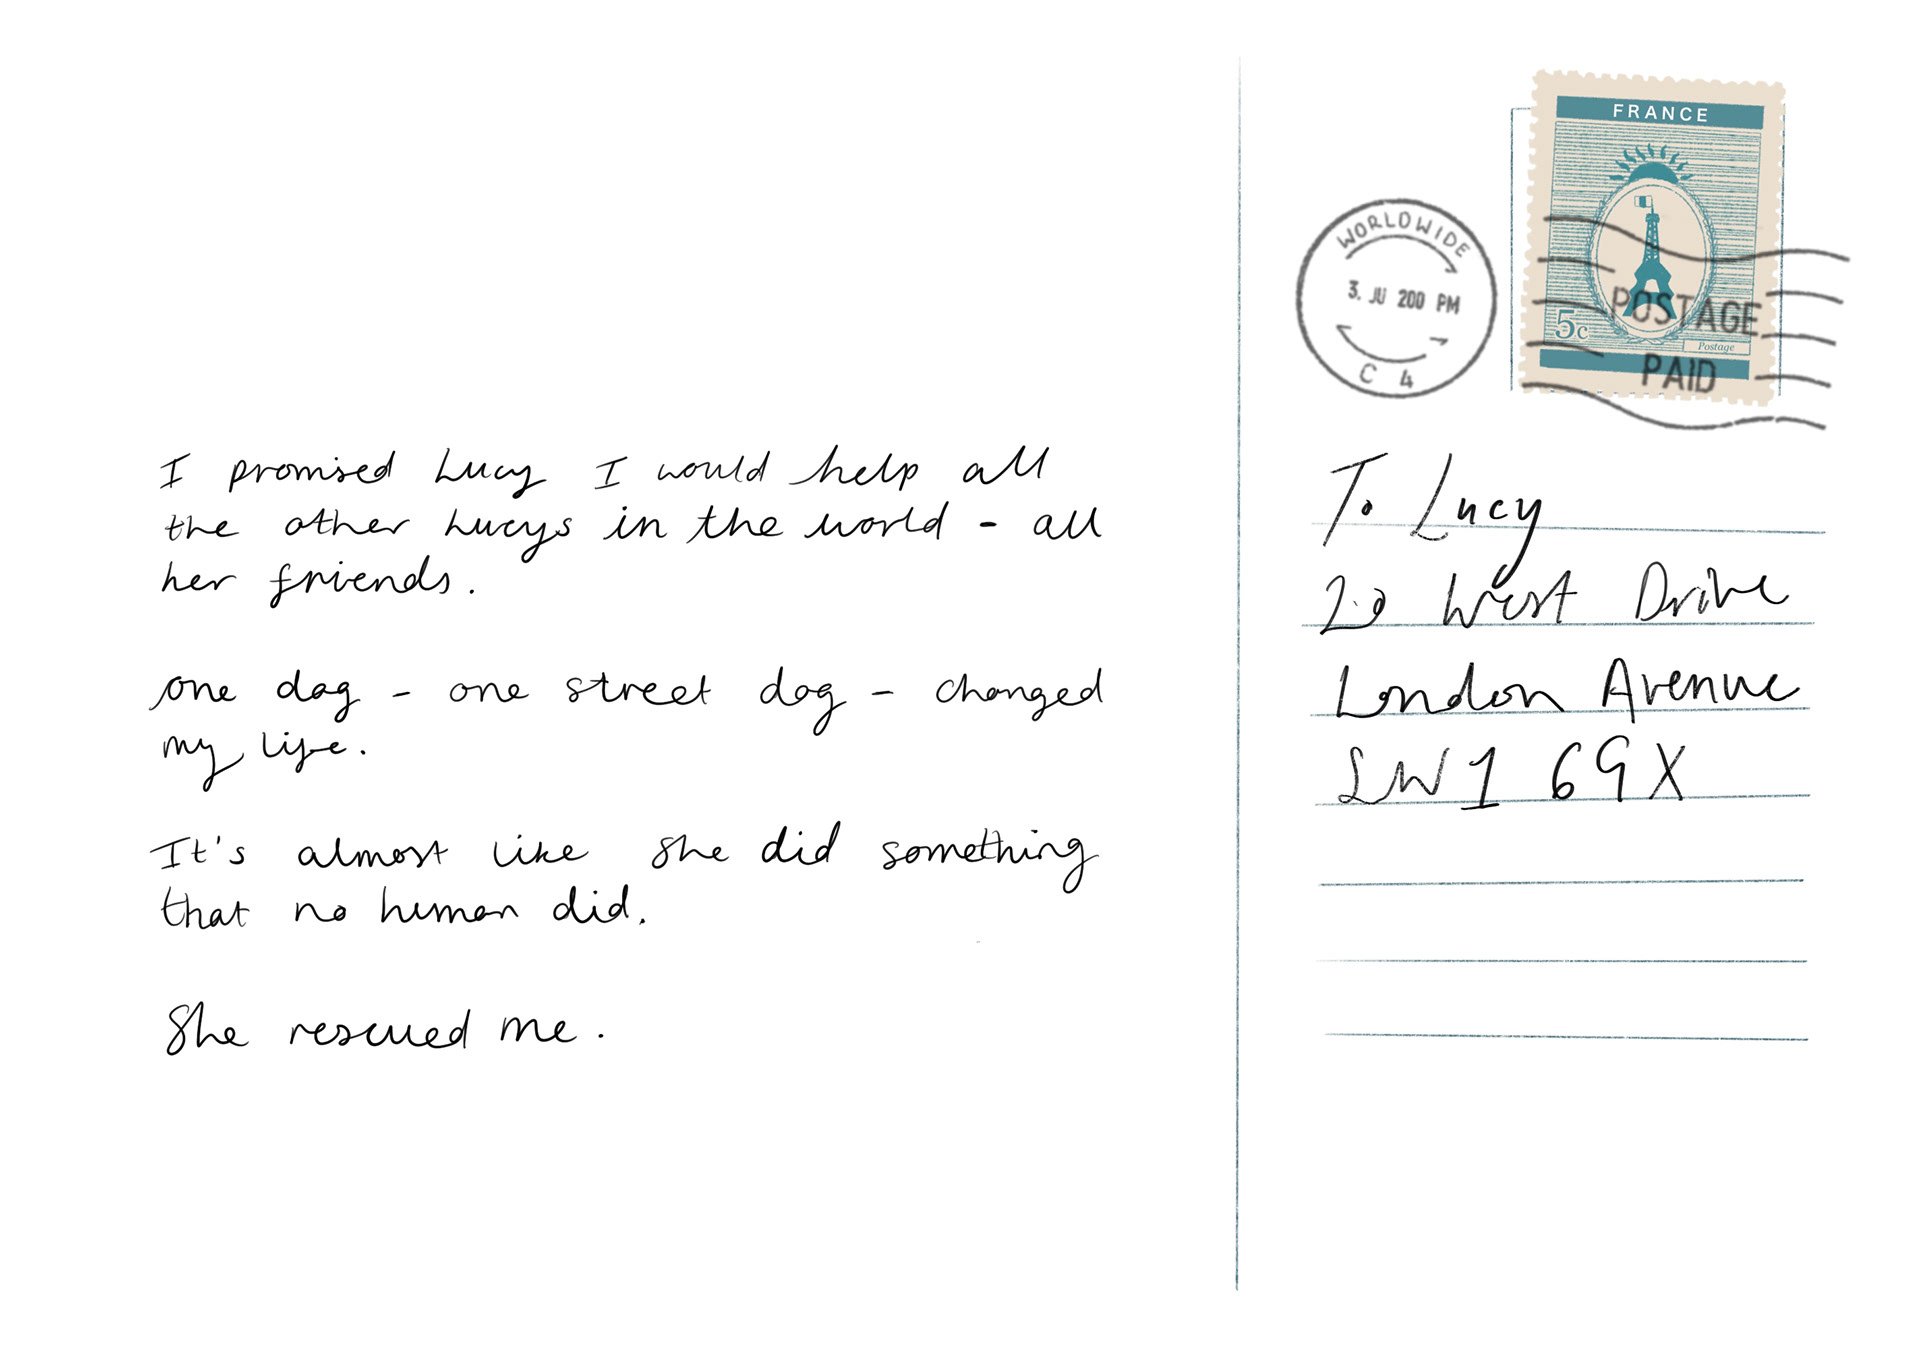 I promised Lucy I would help all
the other Lucys in the world - all
her friends.
one dog - one street dog - changed
my life.
It's almost like she did something
that no human did.
She rescued me.
FRANCE
5c
Postage
POSTAGE
PAID
WORLDWIDE
3. JU 200 PM
C 4
To Lucy
20 West Drive
London Avenue
SW1 6GX